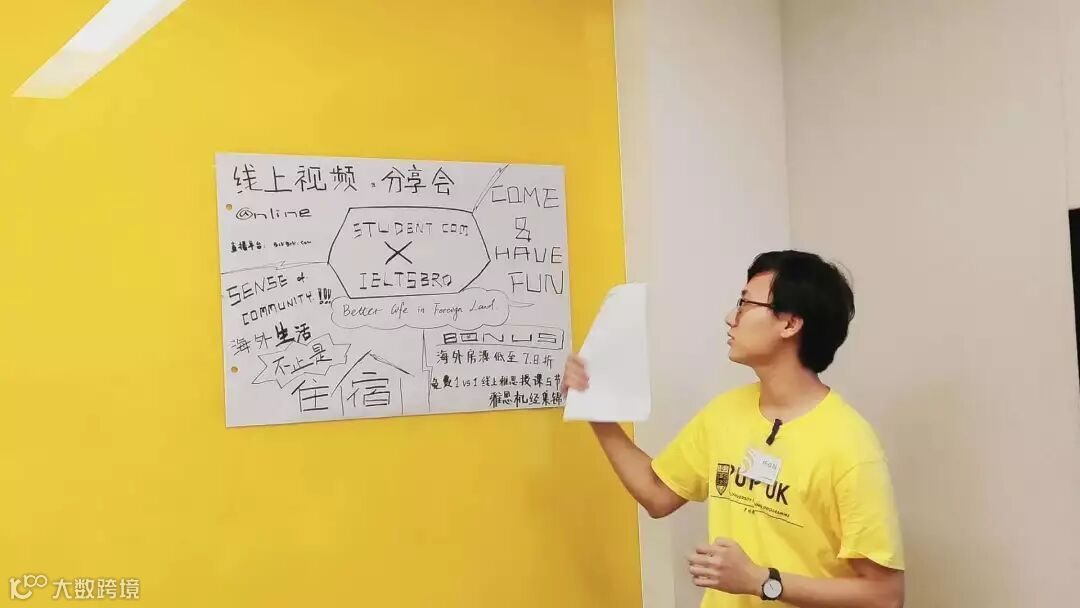 线上视频 分享会
@nline
直播平台:
STUDENT COM
X
IELTSBRO
COME
&
HAVE
FUN
SENSE of
COMMUNITY !!!
Better life in Foreign Land
海外生活
不止是
住宿
BONUS
海外房源低至7.8折
免费1 vs 1线上雅思授课5节
雅思机经集锦
PUP UK
大数跨境